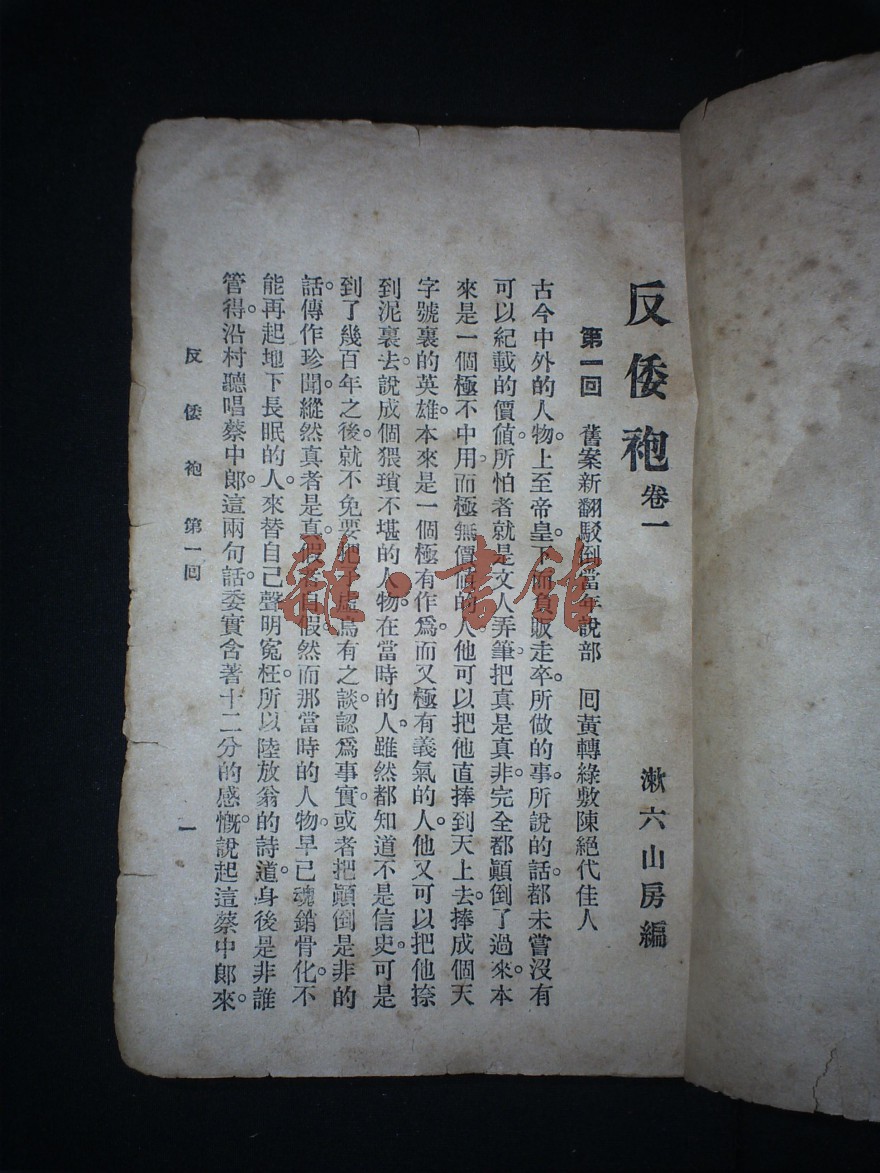 反倭袍卷一
漱六山房編
第一回 舊案新翻駁倒當年說部 回黃轉綠敷陳絕代佳人
古今中外的人物。上至帝皇。下而負販走卒。所做的事。所說的話。都未嘗沒有
可以紀載的價值。所怕者就是文人弄筆。把真是真非。完全都顛倒了過來。本
來是一個極不中用。而極無價值的人。他可以把他直捧到天上去。捧成個天
字號裏的英雄。本來是一個極有作爲。而又極有義氣的人。他又可以把他捺
到泥裏去。說成個猥瑣不堪的人物。在當時的人。雖然都知道不是信史。可是
到了幾百年之後。就不免要把子虛烏有之談。認爲事實。或者把顛倒是非的
話。傳作珍聞。縱然真者是真。假者自假。然而那當時的人物。早已魂銷骨化。不
能再起地下長眠的人。來替自己聲明寃枉。所以陸放翁的詩道。身後是非誰
管得。沿村聽唱蔡中郎。這兩句話。委實含著十二分的感慨。說起這蔡中郎來。
反倭袍 第一回
一
雜·書館